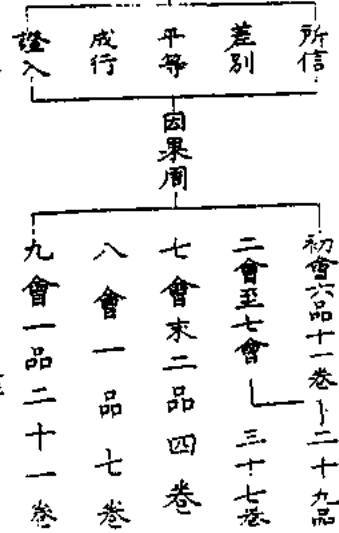 所信
差別
平等
成行
證入
因果周
初會六品十一卷
二會至七會
二十九品
三十七卷
七會末二品四卷
八會一品七卷
九會一品二十一卷